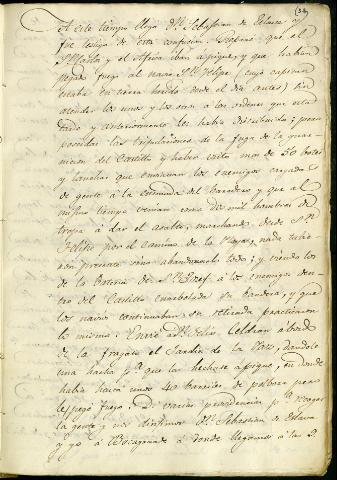 (34)
A este tiempo llego Dn. Sebastian de Eslava y
fue testigo de esta confusion. Supuso que el
Sn. Carlos y el Africa iban a pique, y que habian
pegado fuego al navio Sn. Felipe (cuyo capitan
estaba en tierra herido desde el dia antes) sin
atender los unos y los otros a las ordenes que esta
tarde y anteriormente les habia distribuido; pero
poseidas las tripulaciones de la fuga de la guar-
nicion del Castillo y haber visto mas de 50 botes
y lanchas que enviaron los enemigos cargados
de gente á la ensenada del baradero y que al
mismo tiempo venian como dos mil hombres de
tropa á dar el asalto, marchando desde Sn.
Felipe por el camino de la playa, nada tubie-
ron presente sino abandonarlo todo; y viendo los
de la bateria de Sn. Josef á los enemigos den-
tro del Castillo enarbolada su bandera, y que
los navios continuaban su retirada practicaron
lo mismo. Envié á Dn. Felix Celdran abordo
de la fragata el Jardin de la Paz, dandole
una hacha pa. que la hechase a pique, en donde
habia hacia unos 40 barriles de polbora pero
les pegó fuego. Di varias providencias pa. recoger
la gente y nos dirigimos Dn. Sebastian de Eslava
y yo á Bocagrande á donde llegamos á las 9.